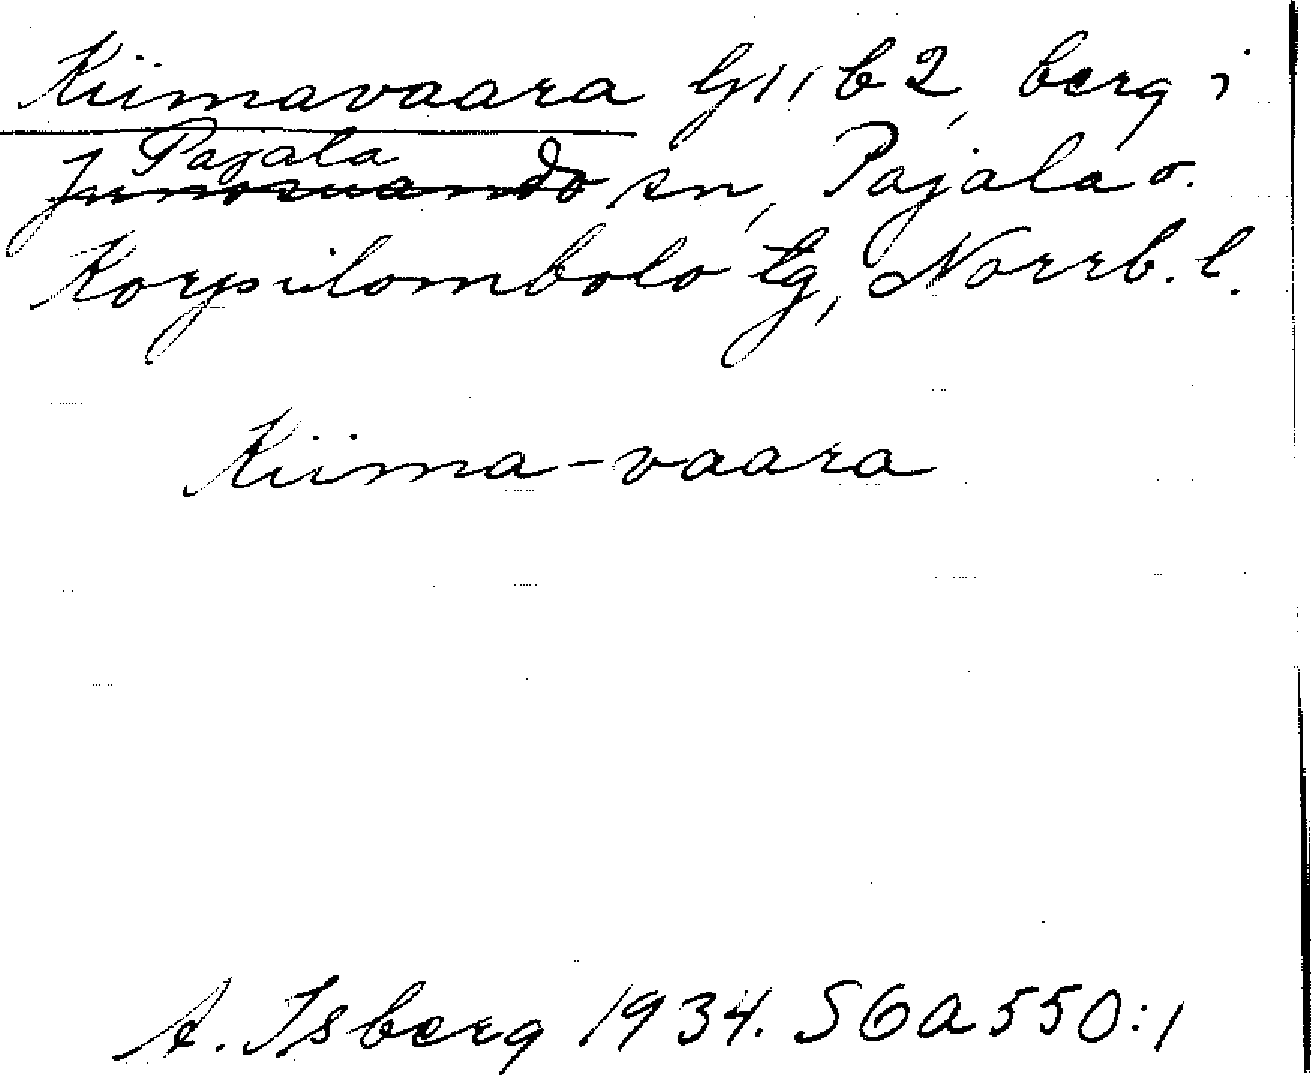 Kiimavaara G11b2, berg i
Pajala
Junosuando sn, Pajala o.
Korpilombolo tg, Norrb. l.
Kiima-vaara
A. Isberg 1934. SOA 550:1